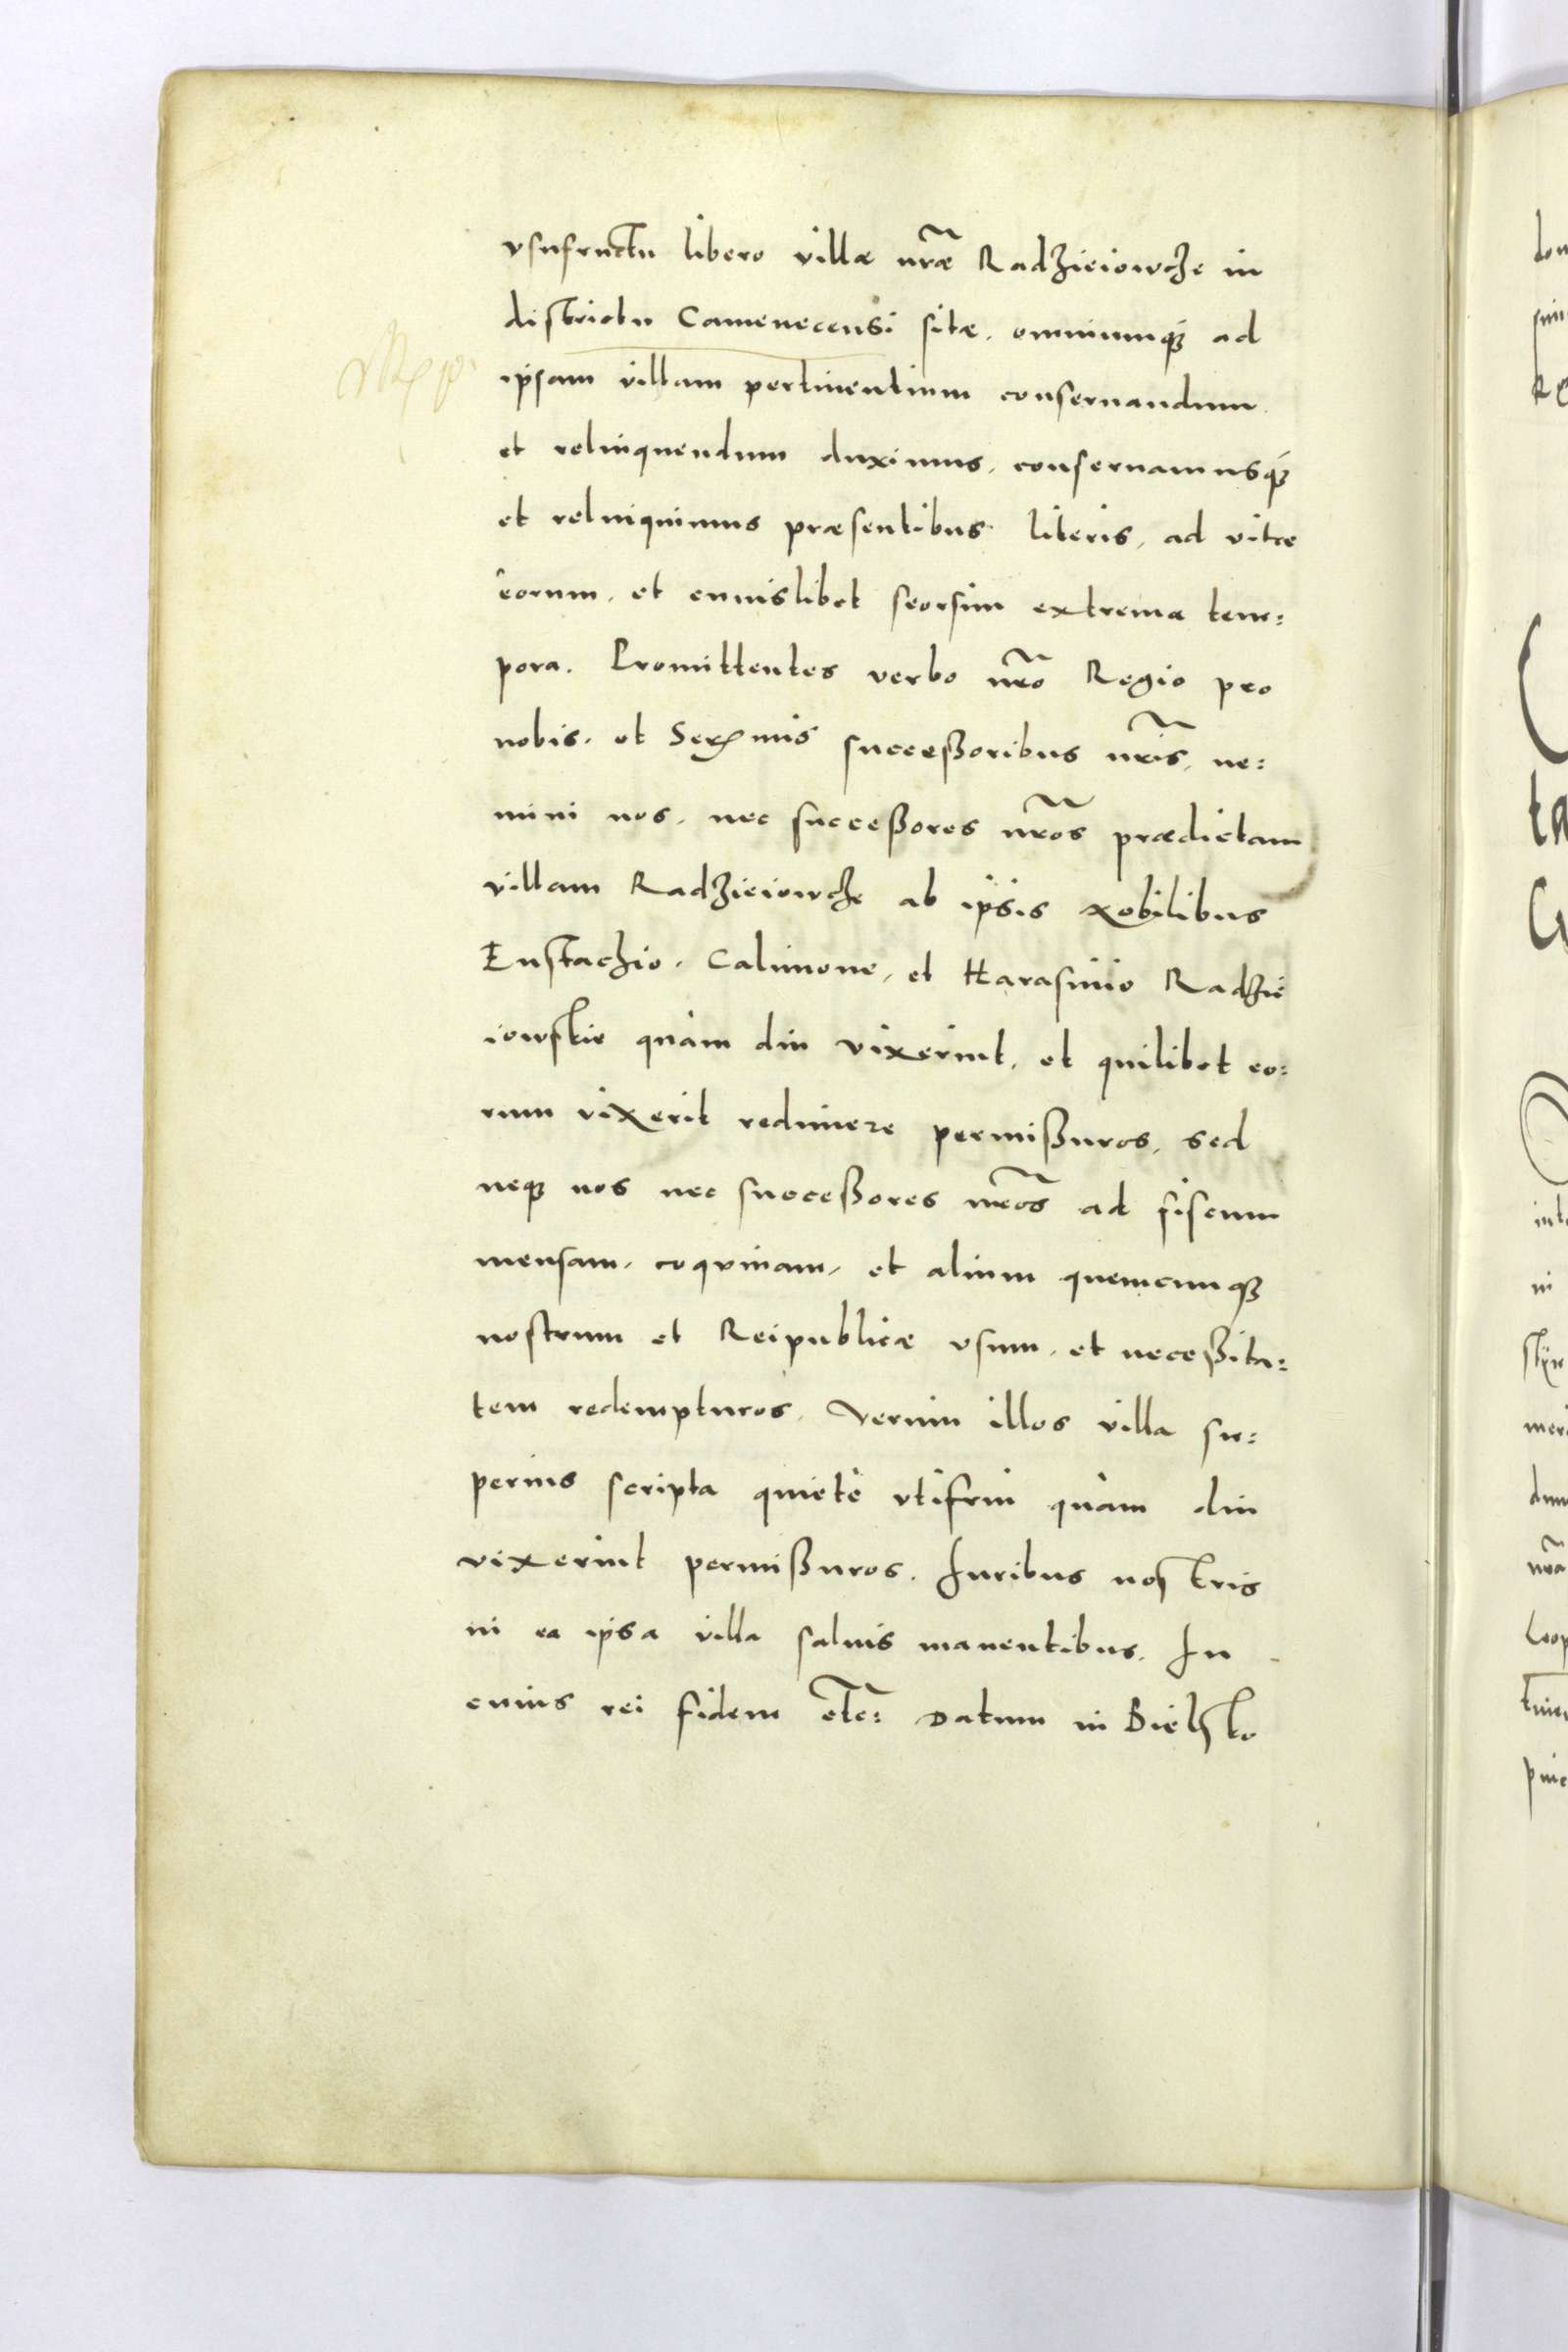 vsufructu libero villæ nr̃æ Radzieiowcze in
districtu Camenecensi sitæ. omniumq; ad
ipsam villam pertinentium conseruandum
et relinquendum duximus, conseruamusq;
et relinquimus præsentibus literis, ad vitæ
eorum, et cuiuslibet seorsim extrema tem:
pora. Promittentes verbo nr̃o Regio pro
nobis, et Serẽmis successoribus nr̃is, ne:
mini nos, nec successores nr̃os prædictam
villam Radzieiowcze ab ipsis Nobilibus
Eustachio, Calimone, et Harasimo Radzie
iowskie quàm diu vixerint, et quilibet eo:
rum vixerit redimere permissuros, sed
neq; nos nec successores nr̃os ad fiscum
mensam, coquinam, et alium quemcunq;
nostrum et Reipublicæ vsum, et necessita:
tem redempturos, Verum illos villa su:
perius scripta quietè vtifrui quàm diu
vixerint permissuros. Iuribus nostris
in ea ipsa villa saluis manentibus. In
cuius rei fidem etc: Datum in Bielsko